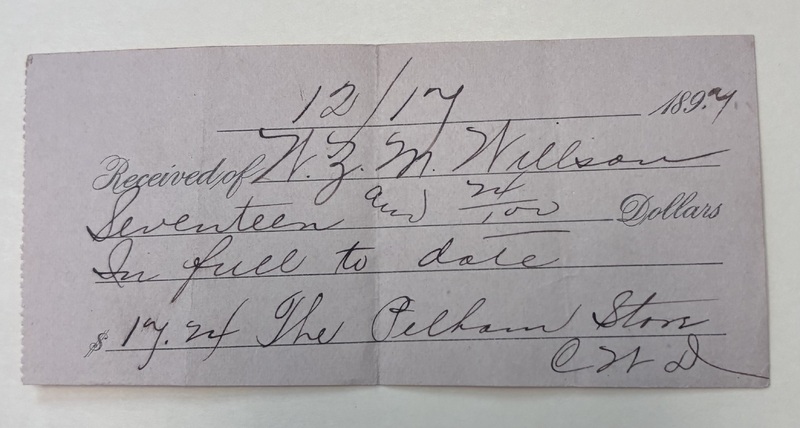 12/17 1897
Received of W. Z. M. Willson
Seventeen and 24/100 Dollars
In full to date
$ 17.24 The Pelham Store
C W D